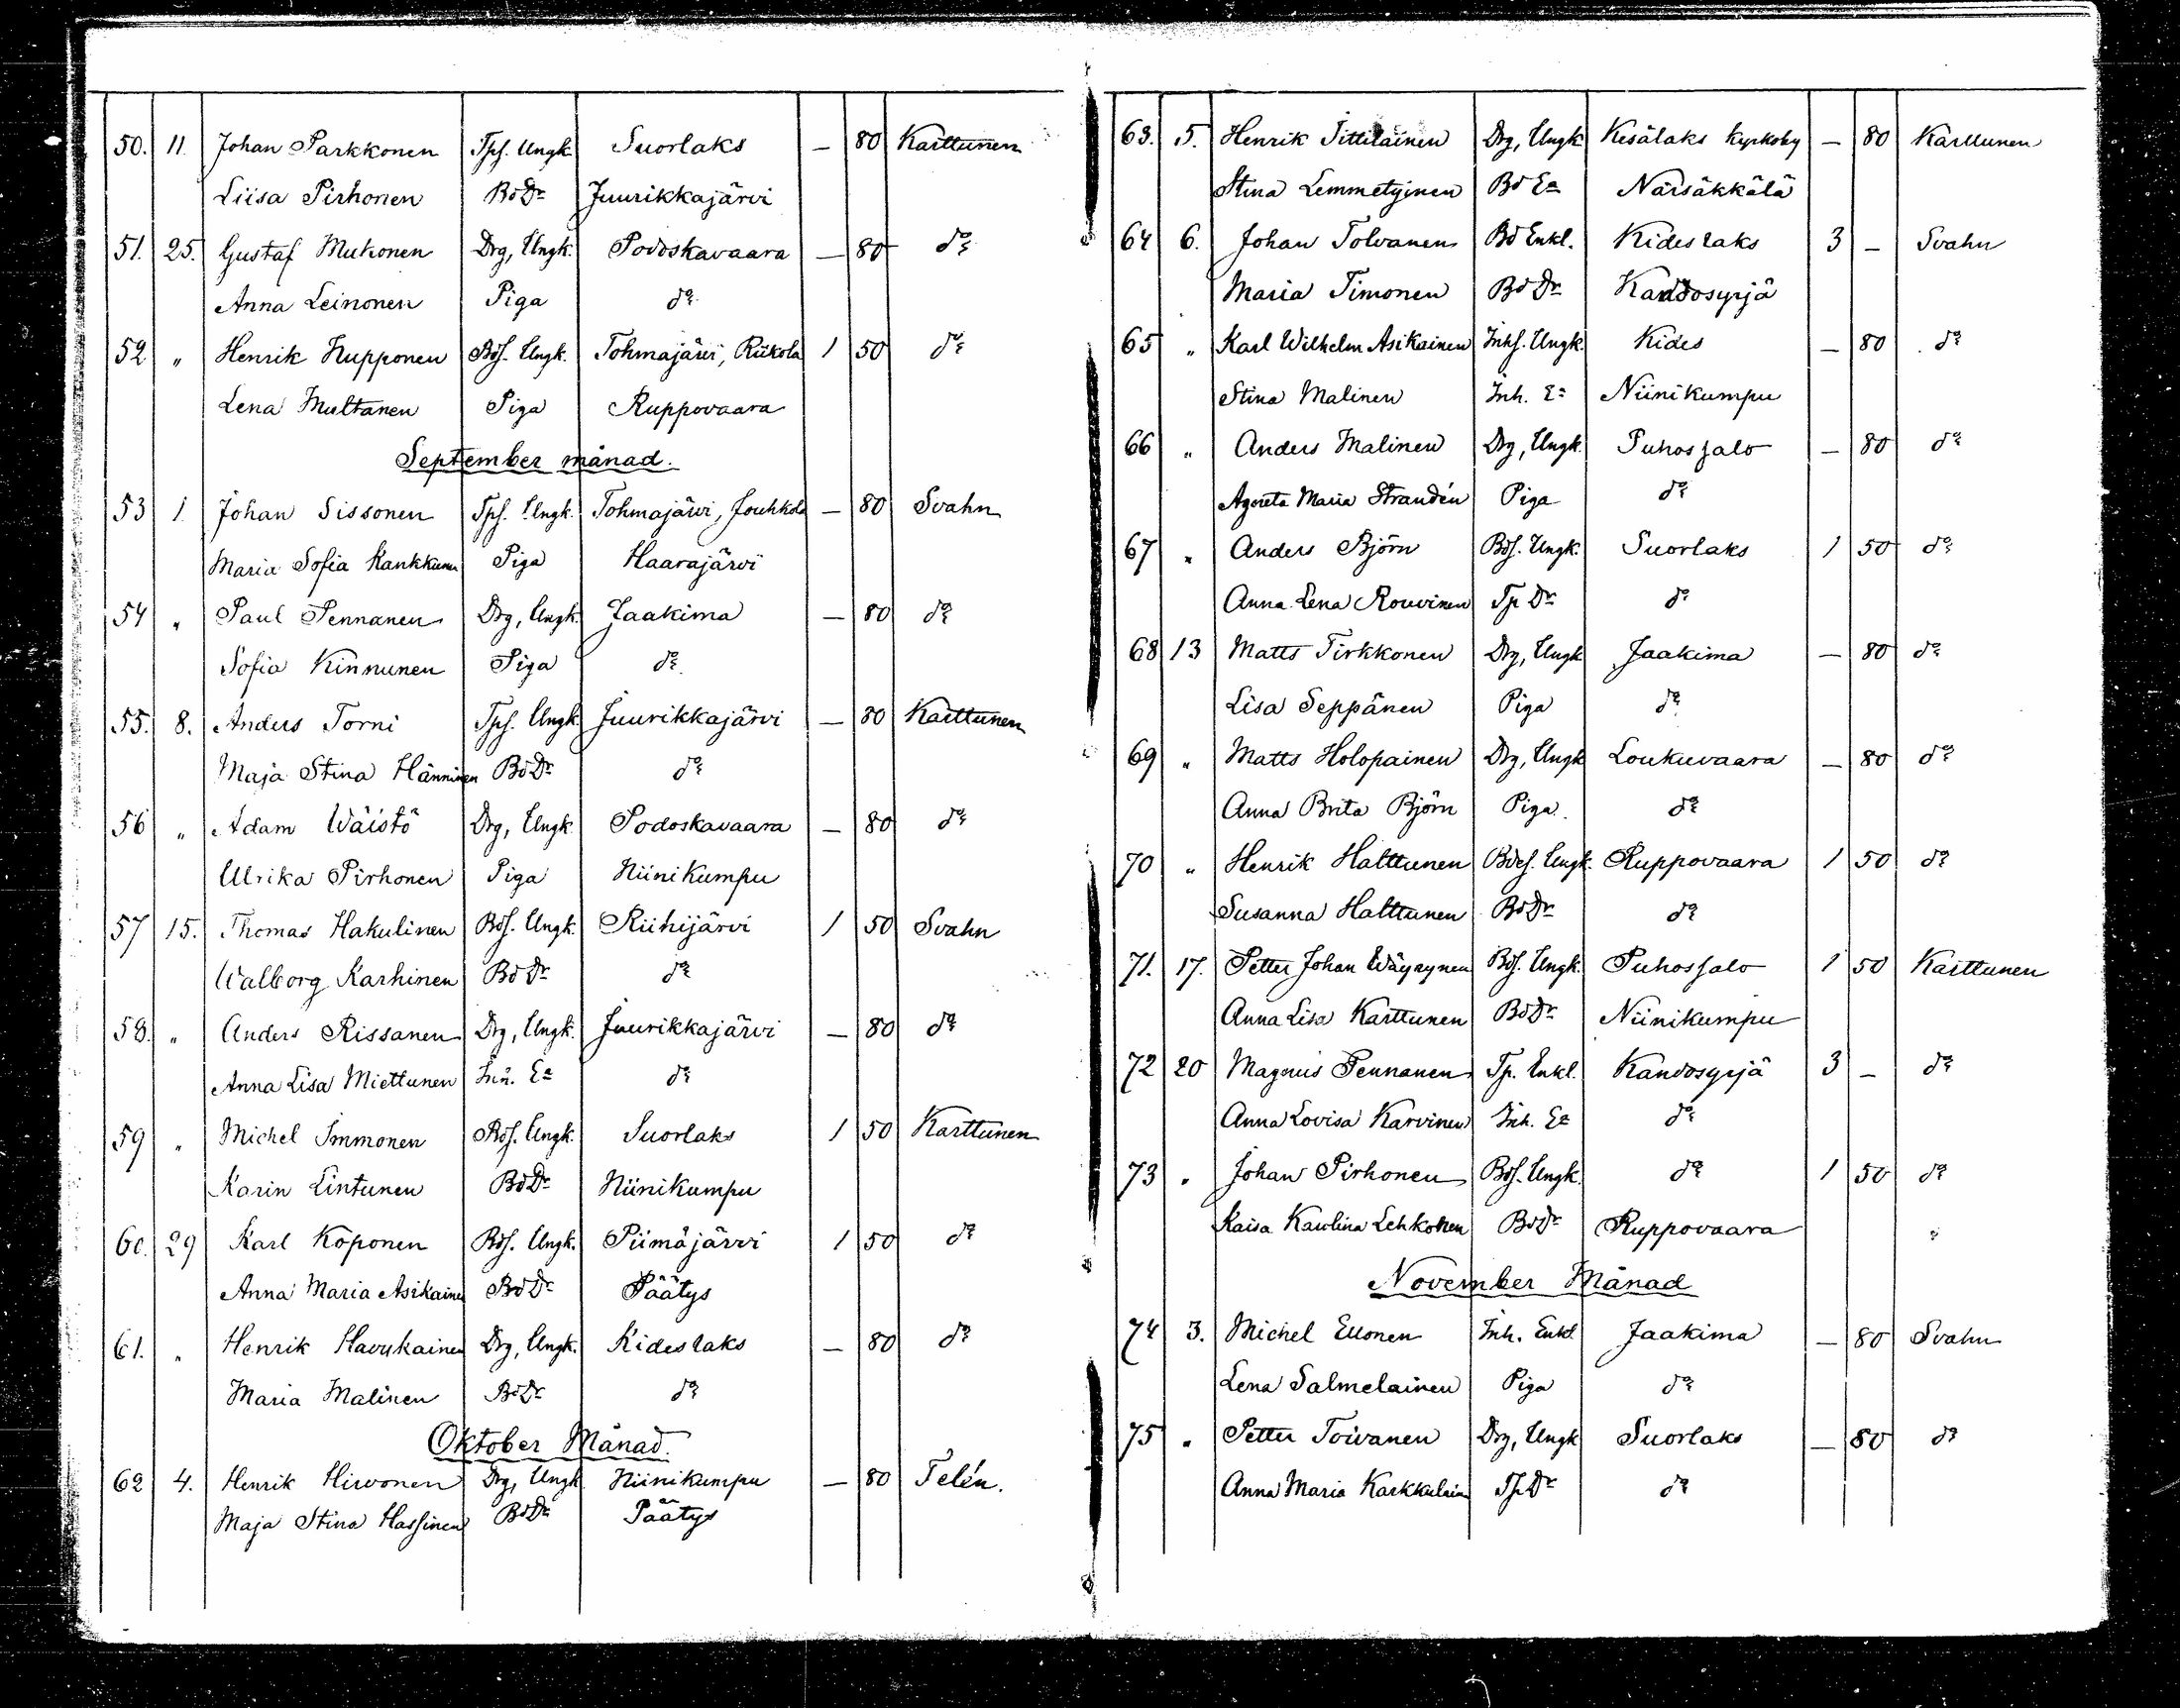 50. 11. Johan Parkkonen Tpf. Ungk. Suorlaks — 80 Karttunen
Liisa Pirhonen Bd Dr Juurikkajärvi
51. 25. Gustaf Mukonen Drg, Ungk. Podoskavaara — 80 do
Anna Leinonen Piga do
52 " Henrik Hupponen Bdf. Ungk. Tohmajärvi, Riikola 1 50 do
Lena Multanen Piga Ruppovaara
September månad.
53 1 Johan Sissonen Tpf. Ungk. Tohmajärvi, Jouhkola — 80 Svahn
Maria Sofia Kankkunen Piga Haarajärvi
54 " Paul Pennanen Drg, Ungk. Jaakima — 80 do
Sofia Kinnunen Piga do
55. 8. Anders Torni Tpf. Ungk. Juurikkajärvi — 80 Karttunen
Maja Stina Hänninen Bd Dr do
56 " Adam Wäistö Drg, Ungk. Podoskavaara — 80 do
Ulrika Pirhonen Piga Niinikumpu
57 15. Thomas Hakulinen Bdf. Ungk. Riihijärvi 1 50 Svahn
Walborg Karhinen Bd Dr do
58. " Anders Rissanen Drg, Ungk. Juurikkajärvi — 80 do
Anna Lisa Miettunen Inh. Ea do
59 " Michel Immonen Bdf. Ungk. Suorlaks 1 50 Karttunen
Karin Lintunen Bd Dr Niinikumpu
60. 29 Karl Koponen Bdf. Ungk. Piimäjärvi 1 50 do
Anna Maria Asikainen Bd Dr Päätys
61. " Henrik Havukainen Drg, Ungk. Kideslaks — 80 do
Maria Malinen Bd Dr do
Oktober Månad.
62 4. Henrik Hirvonen Drg, Ungk Niinikumpu — 80 Telén.
Maja Stina Hassinen Bd Dr Päätys
63. 5. Henrik Tittilainen Drg, Ungk Kesälaks kyrkoby — 80 Karttunen
Stina Lemmetyinen Bd Ea Närsäkkälä
64 6. Johan Tolvanen Bd Enkl. Kideslaks 3 — Svahn
Maria Timonen Bd Dr Kandosyrjä
65 " Karl Wilhelm Asikainen Inhf. Ungk. Kides — 80 do
Stina Malinen Inh. Ea Niinikumpu
66 " Anders Malinen Drg, Ungk. Puhossalo — 80 do
Agneta Maria Strandén Piga do
67 " Anders Björn Bdf. Ungk. Suorlaks 1 50 do
Anna Lena Rouvinen Tp Dr do
68 13 Matts Tirkkonen Drg, Ungk Jaakima — 80 do
Lisa Seppänen Piga do
69 " Matts Holopainen Drg, Ungk Loukuvaara — 80 do
Anna Brita Björn Piga do
70 " Henrik Halttunen Bdef. Ungk. Ruppovaara 1 50 do
Susanna Halttunen Bd Dr do
71. 17. Petter Johan Wäyrynen Bdf. Ungk. Puhossalo 1 50 Karttunen
Anna Lisa Karttunen Bd Dr Niinikumpu
72 20 Magnus Pennanen Tp. Enkl. Kandosyrjä 3 — do
Anna Lovisa Karvinen Inh. Ea do
73 " Johan Pirhonen Bdf. Ungk. do 1 50 do
Kaisa Karolina Lehkonen Bd Dr Ruppovaara
November Månad
74 3. Michel Ellonen Inh. Enkl. Jaakima — 80 Svahn
Lena Salmelainen Piga do
75 " Petter Toivanen Drg, Ungk Suorlaks — 80 do
Anna Maria Karkkulainen Tp Dr do